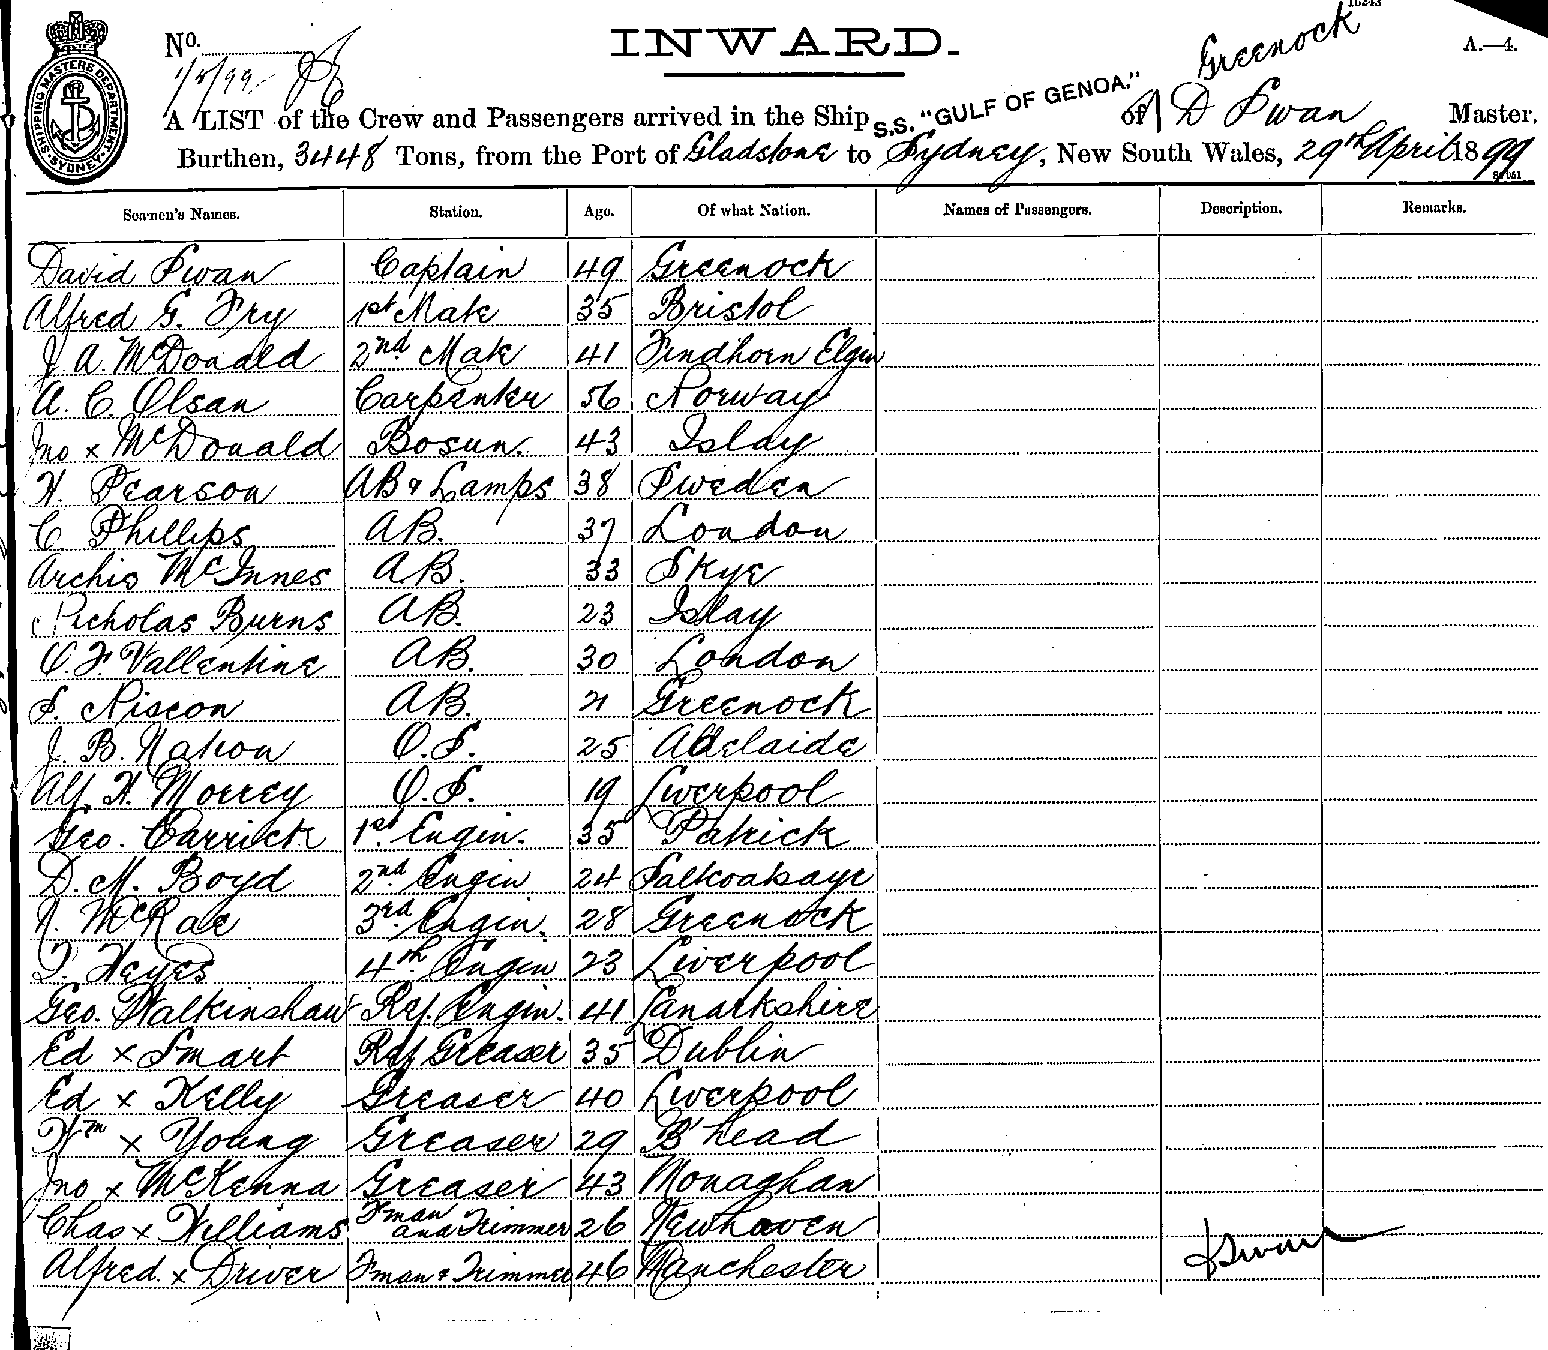 No. INWARD. Greenock A.—4.
1/5/99
A LIST of the Crew and Passengers arrived in the Ship S.S. "GULF OF GENOA." of D Swan Master,
Burthen, 3448 Tons, from the Port of Gladstone to Sydney, New South Wales, 29th April 1899
SHIPPING MASTERS DEPARTMENT SYDNEY
Seamen's Names. Station. Age. Of what Nation. Names of Passengers. Description. Remarks.
David Swan Captain 49 Greenock
Alfred G. Fry 1st Mate 35 Bristol
J A. McDonald 2nd Mate 41 Findhorn Elgin
A. C. Olsan Carpenter 56 Norway
Jno x McDonald Bosun. 43 Islay
H. Pearson AB & Lamps 38 Sweden
C Phillips AB. 37 London
Archie McInnes AB. 33 Skye
Nicholas Burns AB. 23 Islay
O. F Vallentine AB. 30 London
S. Niscon AB. 21 Greenock
J. B. Nation O.S. 25 Adelaide
Alf. H. Morrey O.S. 19 Liverpool
Geo. Carrick 1st Engin. 35 Patrick
D. M. Boyd 2nd Engin 24
N. McRae 3rd Engin. 28 Greenock
T. Heyes 4th Engin 23 Liverpool
Geo. Walkinshaw Ref. Engin. 41 Lanarkshire
Ed x Smart Ref Greaser 35 Dublin
Ed x Kelly Greaser 40 Liverpool
Wm x Young Greaser 29 B'head
Jno x McKenna Greaser 43 Monaghan
Chas x Williams Fman and Trimmer 26 Newhaven
Alfred. x Driver Fman & Trimmer 46 Manchester
DSwan